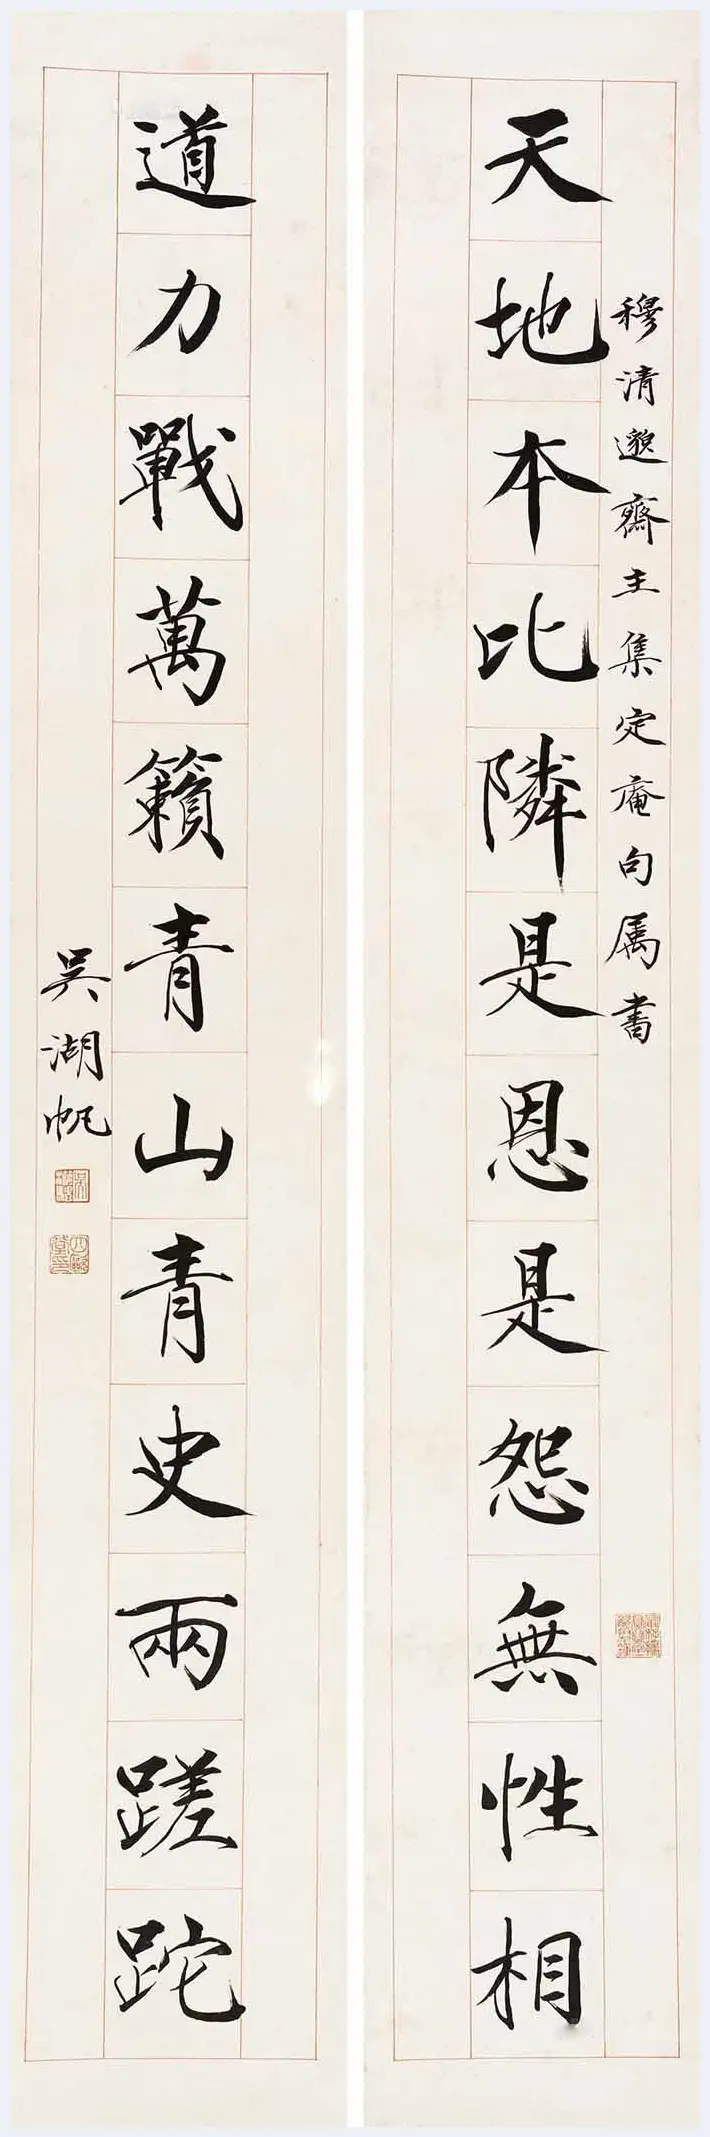 天地本比隣是恩是怨無性相
穆清邈齋主集定庵句属書
道力戰萬籟青山青史兩蹉跎
吳湖帆